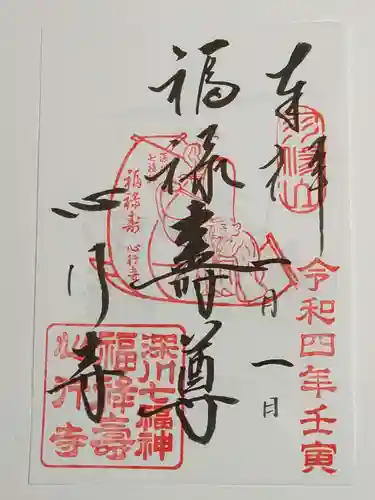 奉拝
令和四年壬寅
一月一日
福禄寿尊
深川
七福神
福禄寿
心行寺
心行寺
深川七福神
福禄壽
心行寺